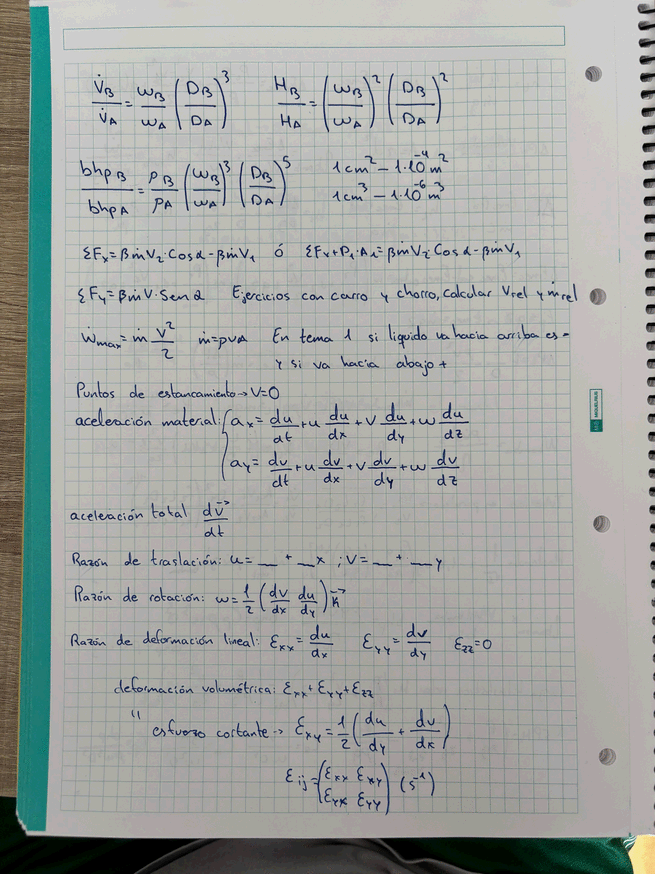 V̇_B/V̇_A = ω_B/ω_A (D_B/D_A)^3   H_B/H_A = (ω_B/ω_A)^2 (D_B/D_A)^2
bhp_B/bhp_A = ρ_B/ρ_A (ω_B/ω_A)^3 (D_B/D_A)^5   1cm^2 - 1·10^-4 m^2
1cm^3 - 1·10^-6 m^3
ΣFx = βṁV₂·Cosα - βṁV₁   ó   ΣFx + P₁·A₁ = βṁV₂·Cosα - βṁV₁
ΣFy = βṁV·Senα   Ejercicios con carro y chorro, calcular Vrel y ṁrel
Ẇmax = ṁ V²/2   ṁ = ρVA   En tema 1 si liquido va hacia arriba es -
y si va hacia abajo +
Puntos de estancamiento → V=0
aceleración material: { ax = du/dt + u du/dx + v du/dy + w du/dz
ay = dv/dt + u dv/dx + v dv/dy + w dv/dz
aceleración total dv⃗/dt
Razón de traslación: u = __ + __x ; V = __ + __y
Razón de rotación: ω = 1/2 (dv/dx du/dy) k⃗
Razón de deformación lineal: Ɛxx = du/dx   Ɛyy = dv/dy   Ɛzz = 0
deformación volumétrica: Ɛxx + Ɛyy + Ɛzz
" esfuerzo cortante → Ɛxy = 1/2 (du/dy + dv/dx)
Ɛij = (Ɛxx Ɛxy
Ɛyx Ɛyy) (s^-1)